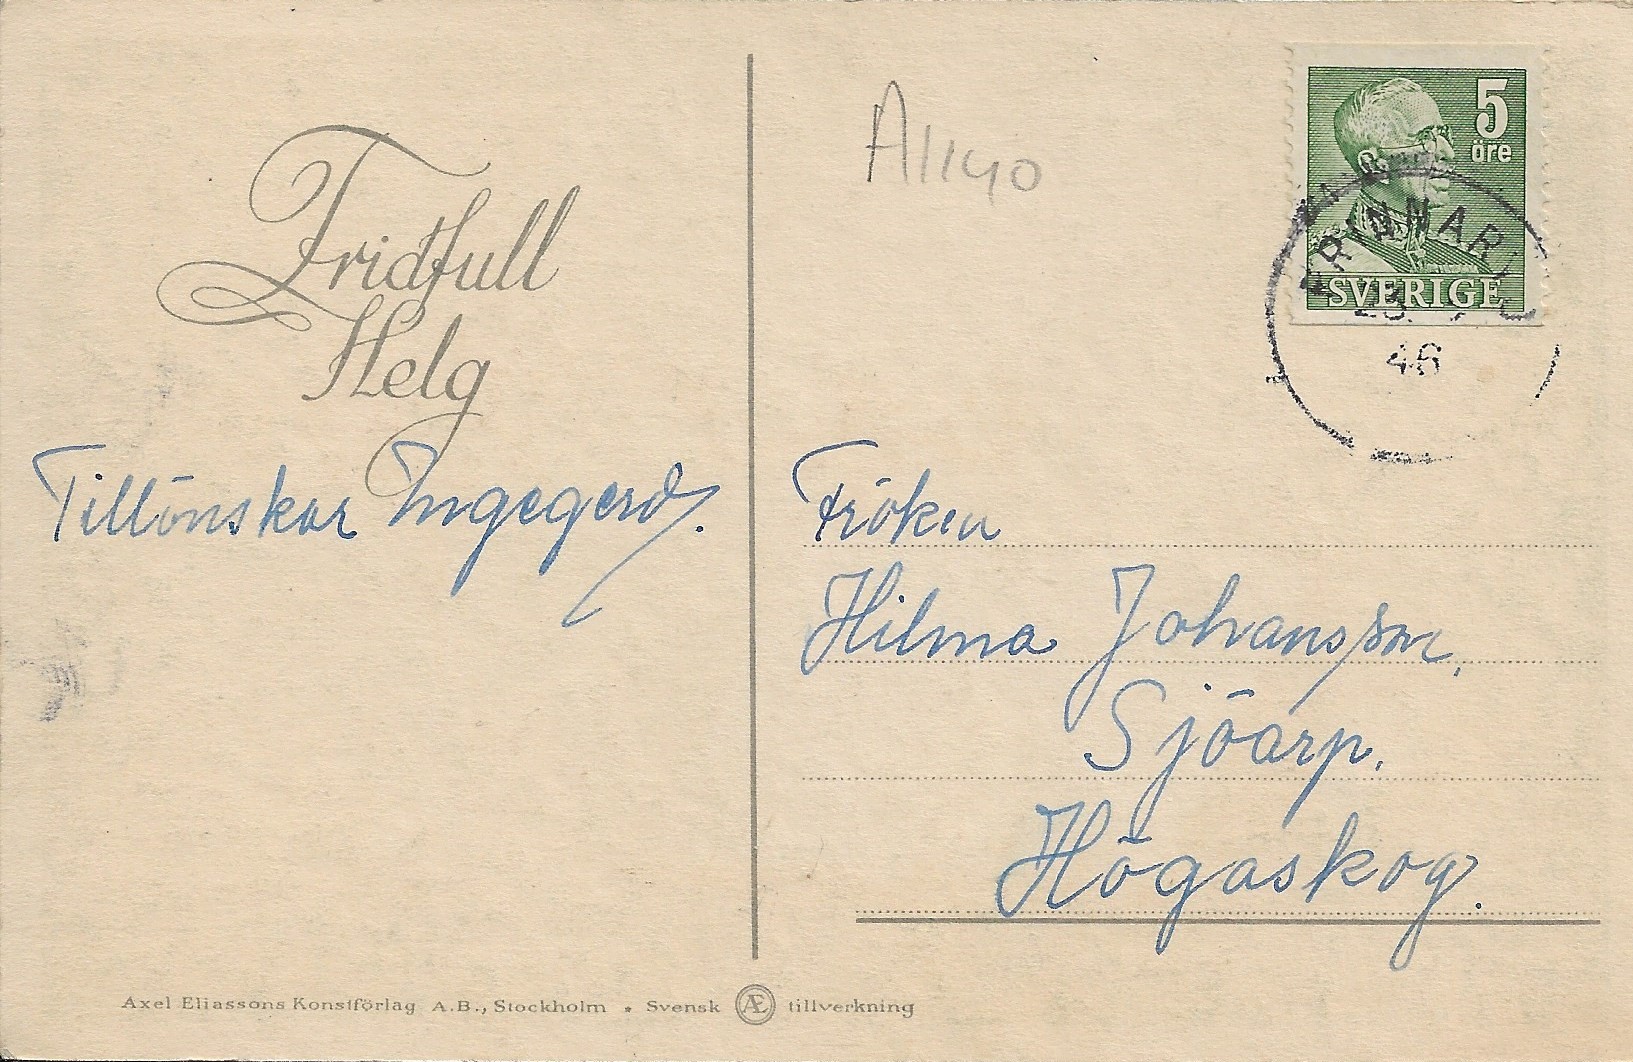 Fridfull
Helg
Tillönskar Ingegerd.
A1140
5
öre
SVERIGE
46
Fröken
Hilma Johansson,
Sjöarp.
Högaskog.
Axel Eliassons Konstförlag A.B., Stockholm • Svensk Æ tillverkning